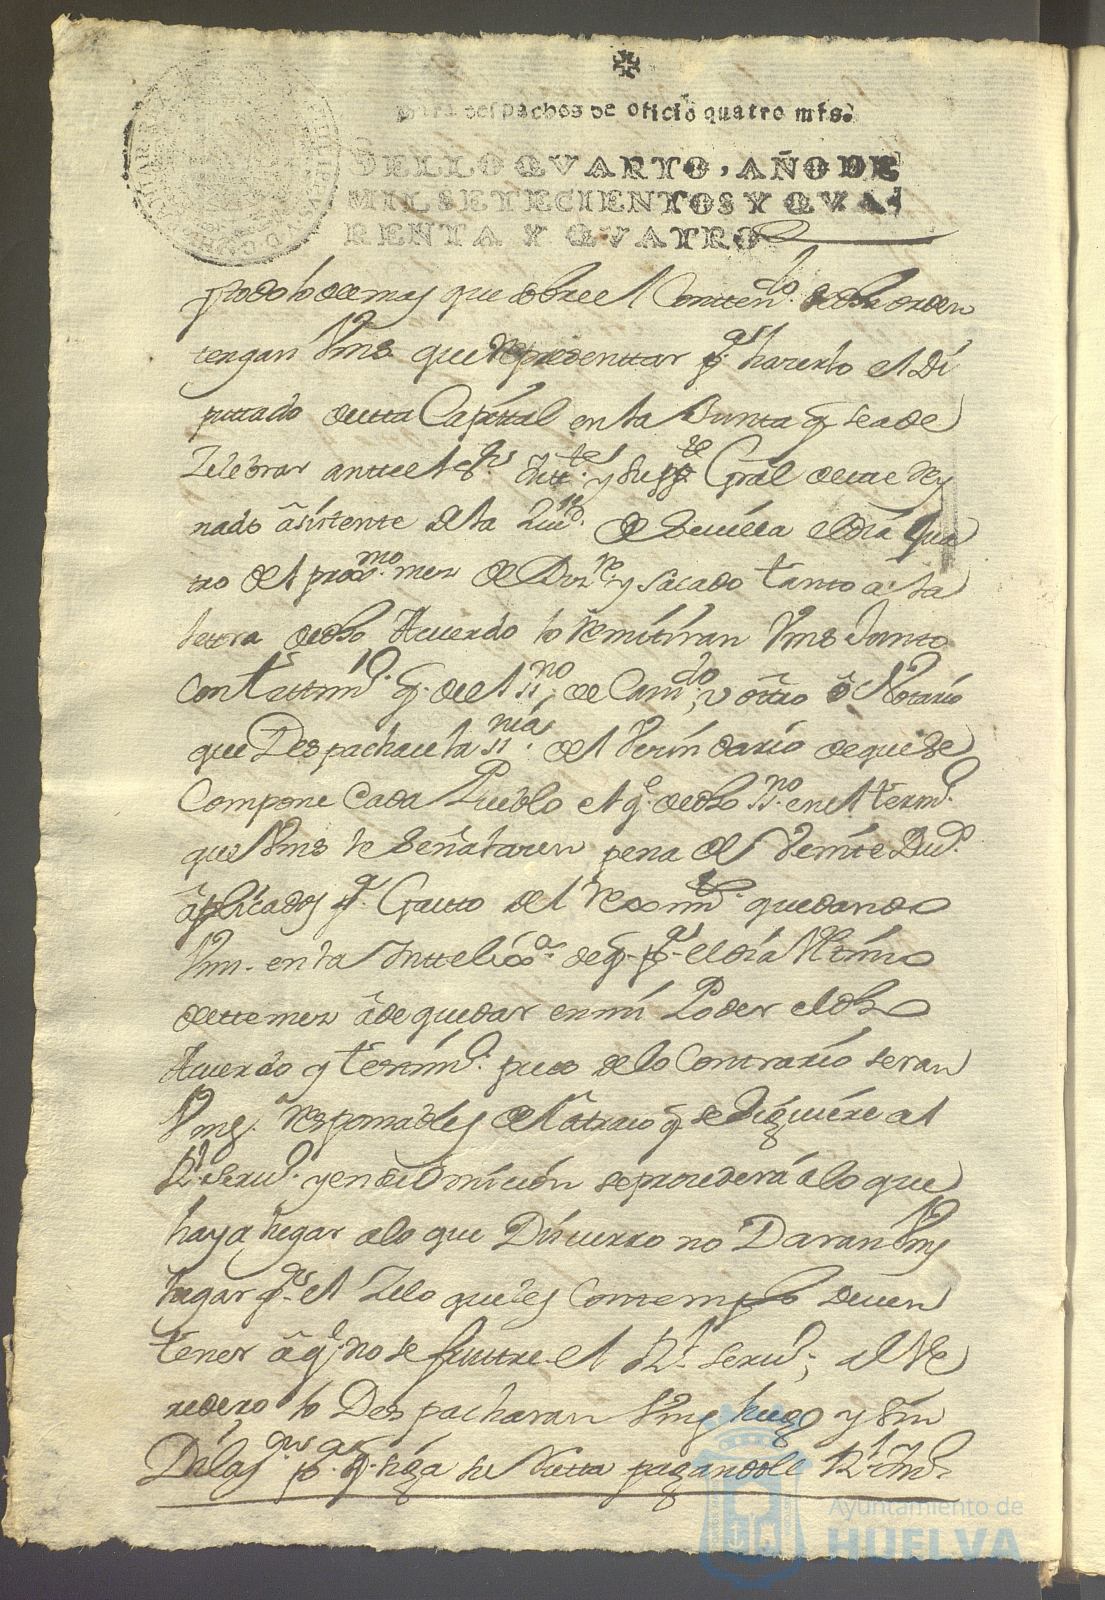 para despachos de oficio quatro mrs.
SELLO QVARTO, AÑO DE
MIL SETECIENTOS Y QVA-
RENTA Y QVATRO
y todo lo demas que sobre el Conten.do de dha orden
tengan Vms. que representtar p.a hacerlo el Di
putado de esta Capital en la Junta q sea de
Zelebrar antte el Sr. Intt.te y Grâl de este Rey
nado âsistente de la Ziud. de Sevilla el dia qua
tro del proxs.mo mes de Diz.re y sacado tanto a la
letra de dho Acuerdo lo Remitiran Vms Junto
Con testtim.o q. de el ss.no de Cavildo, v ôttro ô Notario
que Despachase la ss.nia del Vezindario de que se
Compone Cada Pueblo el q. de dho ss.no en el term.o
que Vms le Señalaren pena de Veinte Du.s
âplicados p.a Gasto del Rex.mto quedando
Vm. en la Inttelix.a de q. p.a el dia Vltimo
de este mes â de quedar en mi Poder el dho
Acuerdo y Testim.o pues de lo Contrario seran
Vms. responsables del âtraso q. se siguiere al
Rl. Serv.o y en su Omicion se procederá a lo que
haya lugar a lo que Discurro no Daran Vms
lugar p.r el Zelo que les Contemplo deven
tener â q. no se frustre el Rl. Serv.o, al Ve
redero lo Despacharan Vms luego y sin
Dilaz.on p.a q. siga su Ruta pagandole Rl. Im.
Ayuntamiento de
HUELVA